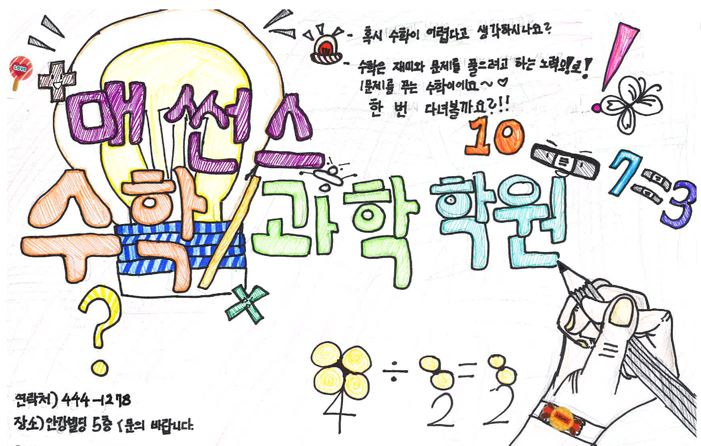 - 혹시 수학이 어렵다고 생각하시나요?
- 수학은 재미와 문제를 풀으려고 하는 노력으로!
1문제를 푸는 수학이에요~♡
한 번 다녀볼까요?!!
매썬스
수학/과학 학원
10 - 7 = 3
?
×
4 ÷ 2 = 2
연락처) 444-1278
장소) 안강빌딩 5층 (문의 바랍니다.